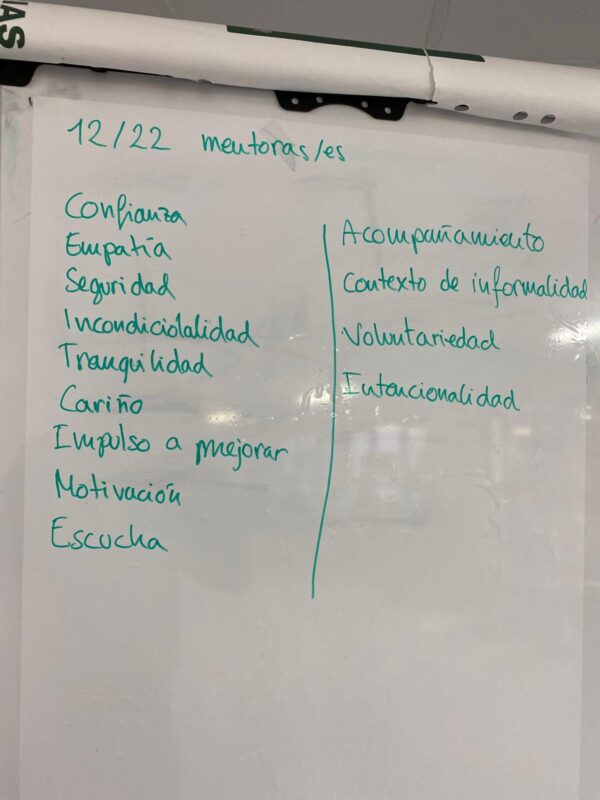 IAS
12/22 mentoras/es
Confianza
Empatía
Seguridad
Incondiciolalidad
Tranquilidad
Cariño
Impulso a mejorar
Motivación
Escucha
Acompañamiento
Contexto de informalidad
Voluntariedad
Intencionalidad